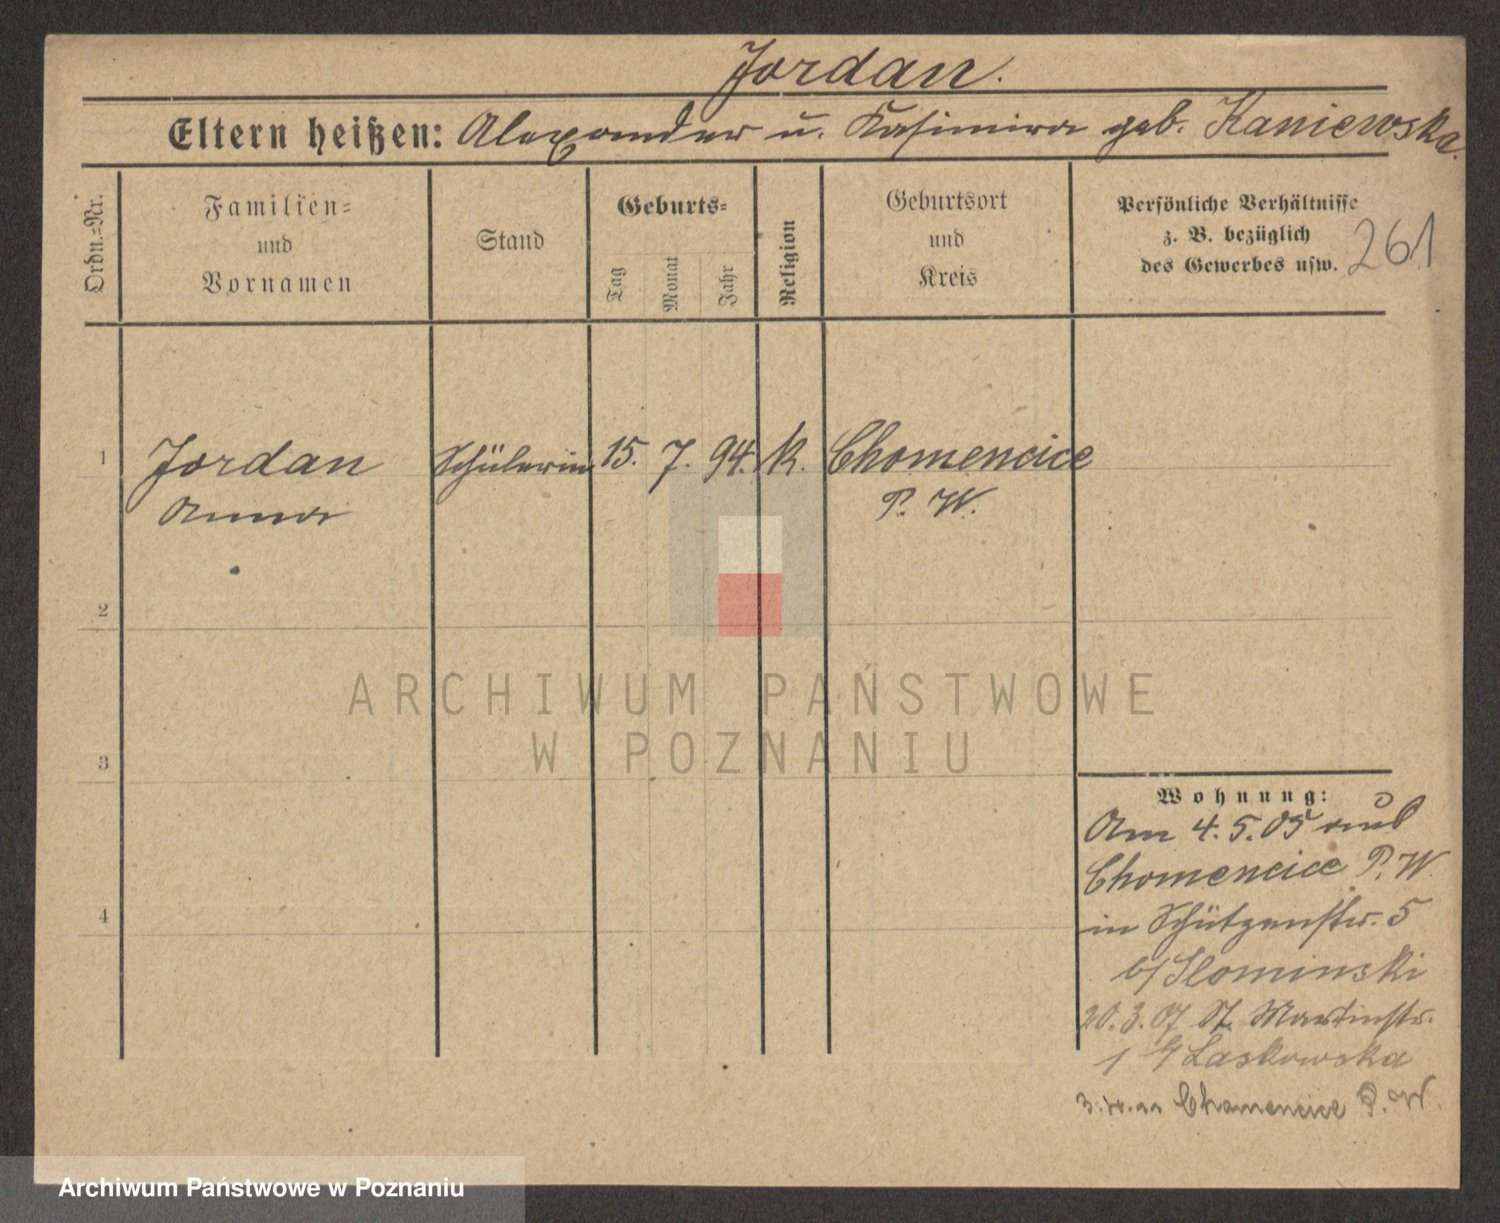 Jordan.
Eltern heißen: Alexander u. Kasimira geb. Kaniewska.
Ordn.-Nr.
Familien-
und
Vornamen
Stand
Geburts-
Tag
Monat
Jahr
Religion
Geburtsort
und
Kreis
Persönliche Verhältnisse
z. B. bezüglich
des Gewerbes usw.
261
1 Jordan Schülerin 15. 7. 94. k. Chomencice
Anna P. W.
2
3
4
ARCHIWUM PAŃSTWOWE
W POZNANIU
Wohnung:
Am 4.5.05 aus
Chomencice P. W.
in Schützenstr. 5
b/ Slominski
20.3.07 St. Martinstr.
1 b/ Laskowska
Chomencice P. W.
Archiwum Państwowe w Poznaniu